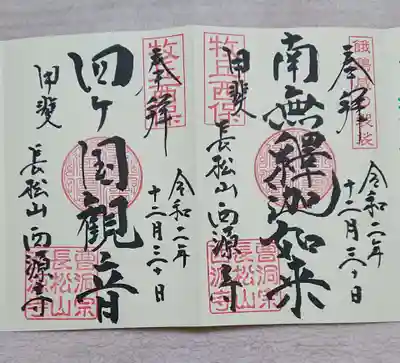 奉拝
令和二年
十二月三十日
南無釋迦如来
甲斐
長松山 西源寺
牧丘西保
曹洞宗
長松山
西源寺
奉拝
令和二年
十二月三十日
四ヶ国觀音
甲斐
長松山 西源寺
牧丘西保
曹洞宗
長松山
西源寺